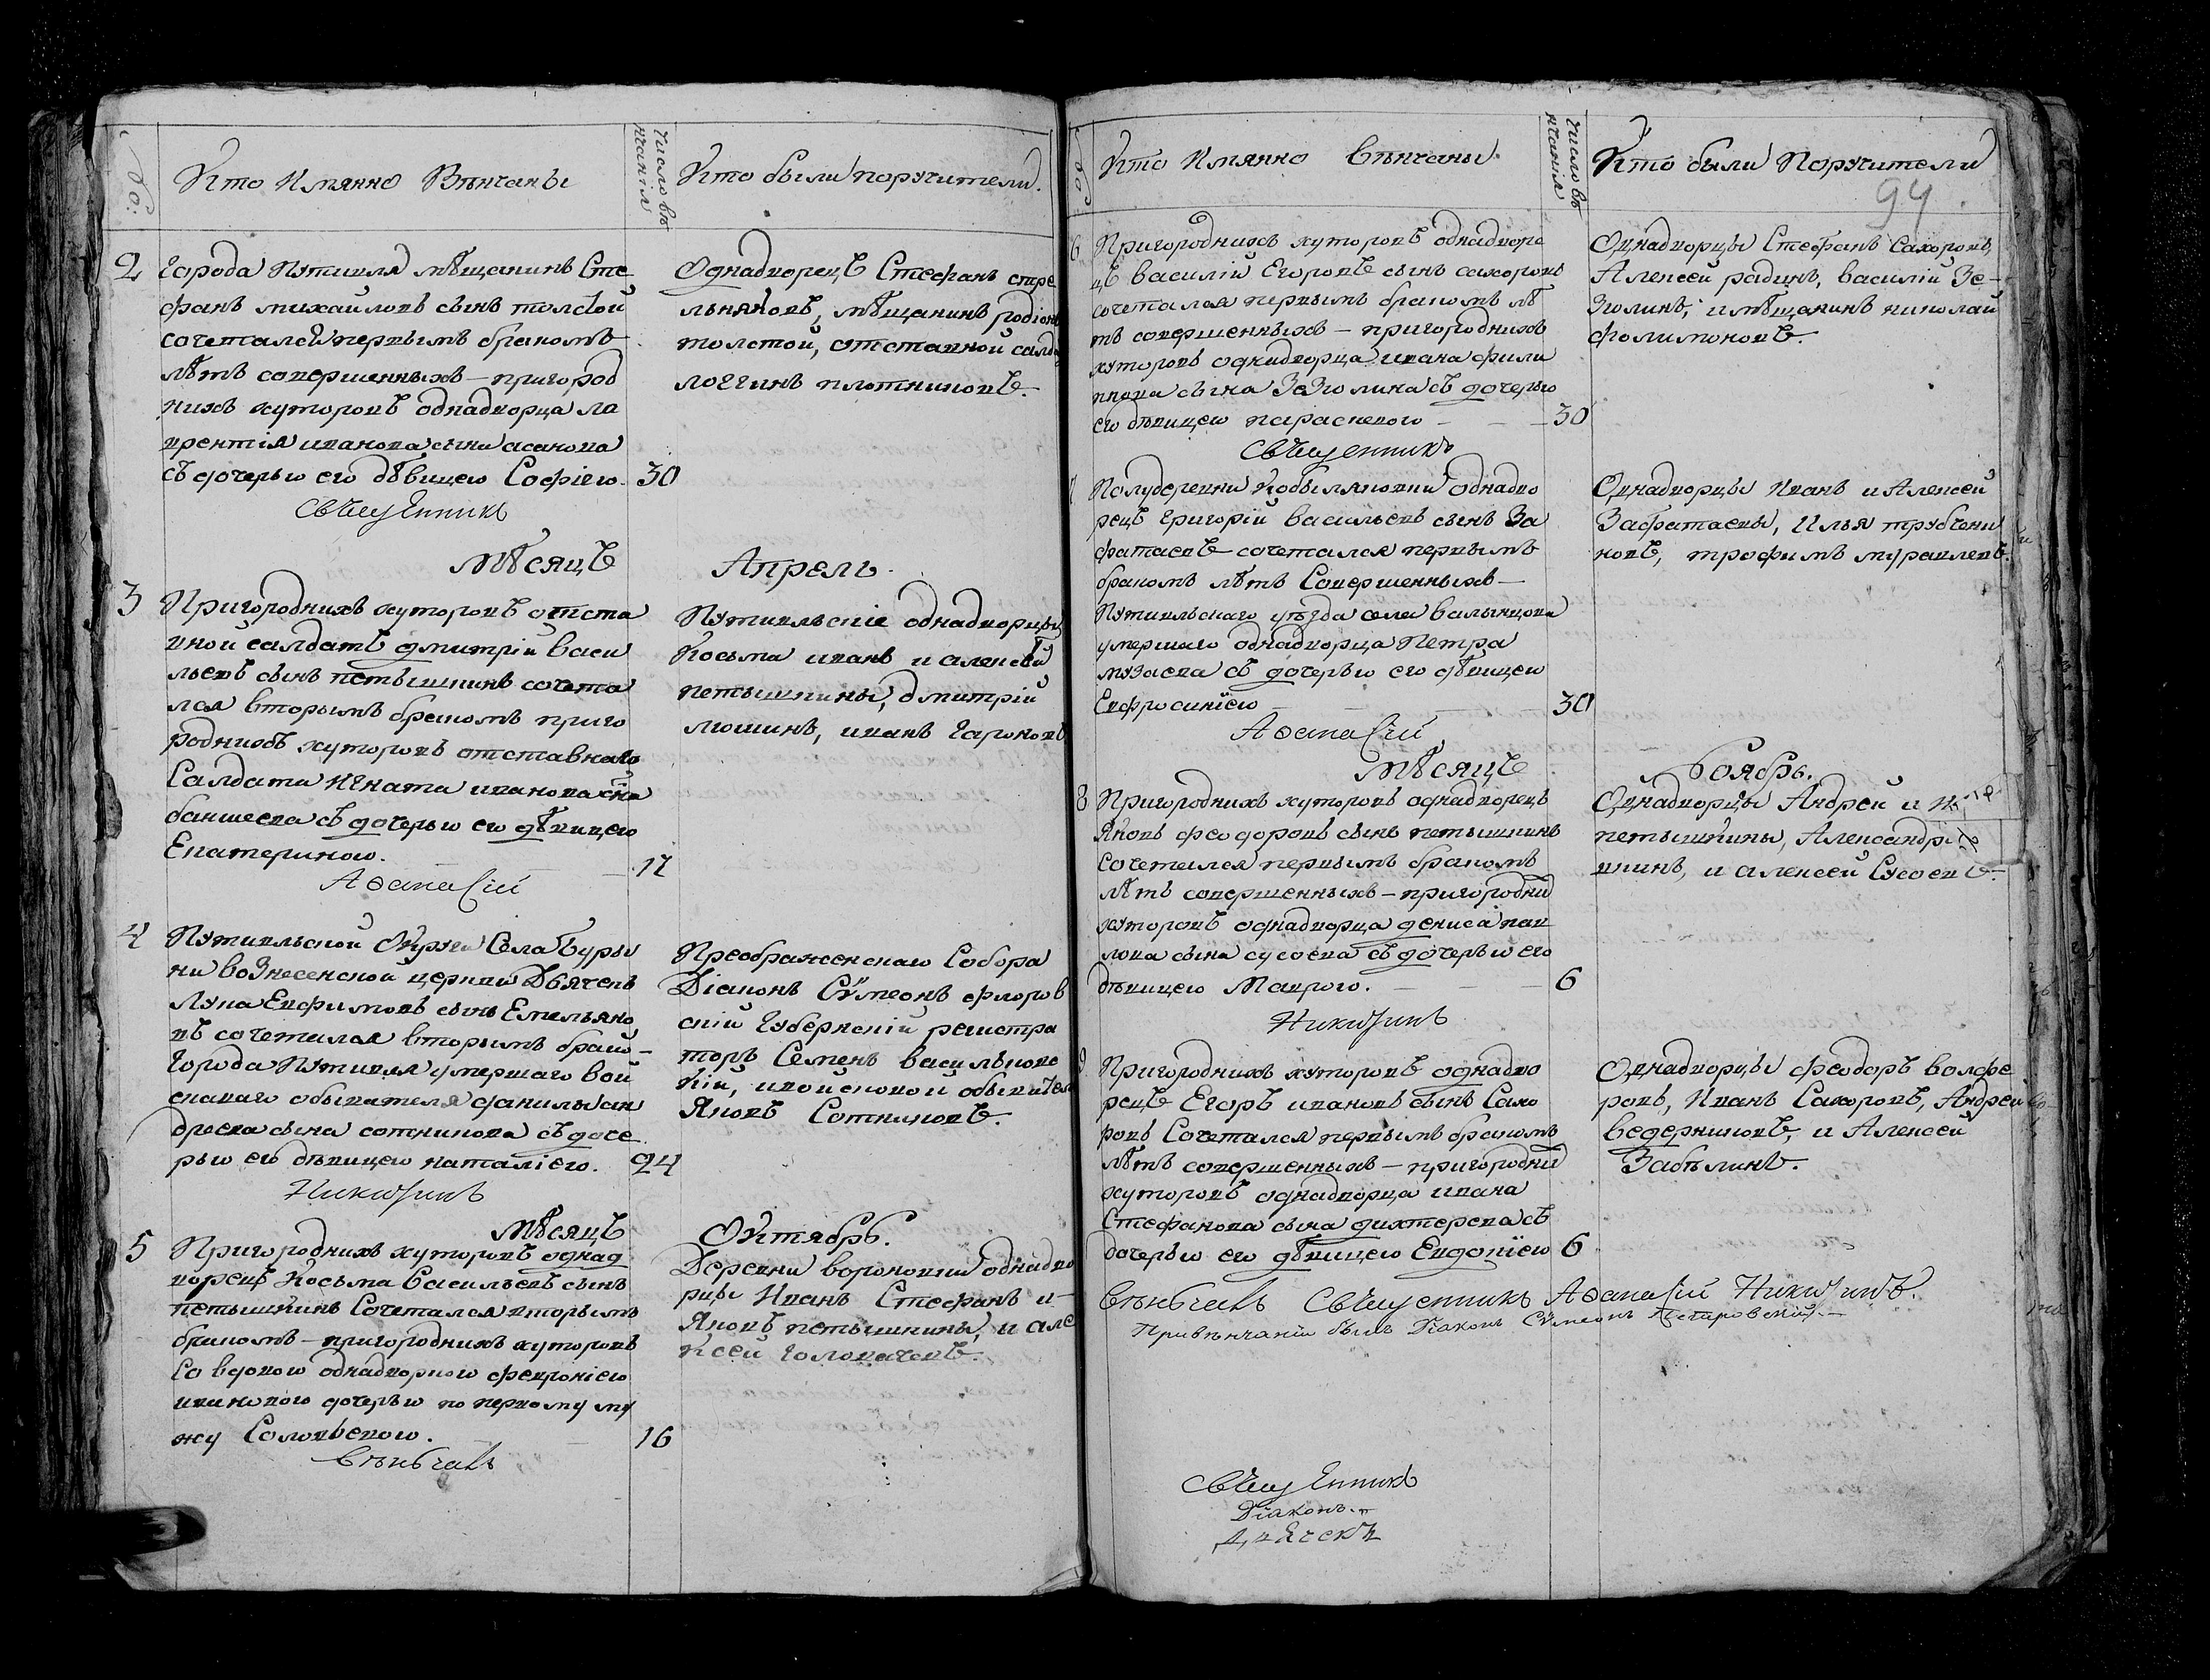 №:
Кто имянно Вѣнчаны
число вѣ
нчанія
Кто были поручители.
2
города Путивля мѣщанинъ Сте
фанъ михайловъ сынъ толстой
сочетался первымъ бракомъ
лѣтъ совершенныхъ – пригород
нихъ хуторовъ однадворца ла
врентія иванова сына асанова
съ дочерью его дѣвицею Софіею.
30
Однадворецъ Стефанъ стре
льняковъ, мѣщанинъ родіонъ
толстой, отставной салда
логгинъ плотниковъ.
Священникъ
мѣсяцъ
Апрель.
3
Пригороднихъ хуторовъ отста
вной салдатъ дмитрій васи
льевъ сынъ петышинъ сочета
лся вторымъ бракомъ приго
роднихъ хуторовъ отставнаго
Салдата Игната иванова сна
баншеева съ дочерью его дѣвицею
Екатериною.
17
Путивльскіе однадворцы
Косьма иванъ и алексѣй
петышкины, дмитрій
люшинъ, иванъ гароховъ
Аѳанасій
4
Путивльской округи Села Буры
ни вознесенской церкви Дьячекъ
Лука Евфимовъ сынъ Емельяно
въ сочетался вторымъ брако –
города Путивля умершаго вой
сковаго обывателя данилы ан
дреева сына сотникова съ доче
рью его дѣвицею наталіею.
24
Преображенскаго Собора
Діаконъ Сѵмеонъ флоров
скій губернскій регистра
торъ Семенъ васильковс
кій, и войсковой обывател
Яковъ Сотниковъ.
Никитинъ
мѣсяцъ
Октябрь.
5
Пригороднихъ хуторовъ однад
ворецъ Косьма Васильевъ сынъ
петышкинъ Сочетался вторымъ
бракомъ – пригороднихъ хуторовъ
Со вдовою однадворкою февроніею
ивановою дочерью по первому му
жу Соловьевою.
16
Деревни вороновки однадво
рцы Иванъ Стефанъ и –
Яковъ петышкины, и але
ксей головачевъ.
Вѣнчалъ
№
Кто Имянно Вѣнчаны.
число вѣ
нчанія
Кто были Поручители
94
6
Пригороднихъ хуторовъ однадворе
цъ василій Егоровъ сынъ сахоровъ
сочетался первымъ бракомъ лѣ
тъ совершенныхъ – пригороднихъ
хуторовъ однадворца ивана фили
ппова сына Зезюлина съ дочерью
его дѣвицею параскевою
30
Однадворцы Стефанъ Сахоровъ,
Алексей радинъ, василій Зе-
Зюлинъ, и мѣщанинъ николай
филимоновъ.
Священникъ
7
Полудеревни Кобыляковки однадво
рецъ григорій васильевъ сынъ За
фатаевъ сочетался первымъ
бракомъ лѣтъ Совершенныхъ –
Путивльскаго уѣзда села валынцова
умершаго однадворца Петра
музаева съ дочерью его дѣвицею
Евфросиніею
30
Однадворцы Иванъ и Алексей
Зафатаевы, Илья трубчени
новъ, трофимъ муравлевъ.
Аѳанасій
мѣсяцъ
Ноябрь.
8
Пригороднихъ хуторовъ однадворецъ
Яковъ феодоровъ сынъ петышкинъ
Сочетался первымъ бракомъ
лѣтъ совершенныхъ – пригородни
хуторовъ однадворца дениса пав
лова сына сусоева съ дочерью его
дѣвицею Маврою.
6
Однадворцы Андрей и
петышкины, Александръ
шинъ, и алексей Сусоевъ.
Никитинъ
9
Пригороднихъ хуторовъ однадво
рецъ Егоръ ивановъ сынъ Сахо
ровъ Сочетался первымъ бракомъ
лѣтъ совершенныхъ – пригородни
хуторовъ однадворца ивана
Стефанова сына дихтерева съ
дочерью его дѣвицею Евдокіею
6
Однадворцы феодоръ волфе
ровъ, Иванъ Сахоровъ, Андрей
ведерниковъ, и Алексей
Забѣлинъ.
Вѣнчалъ Священникъ Аѳанасій Никитинъ.
При вѣнчаніи былъ Діаконъ Сѵмеонъ
Священникъ
Діаконъ.
Дьячекъ